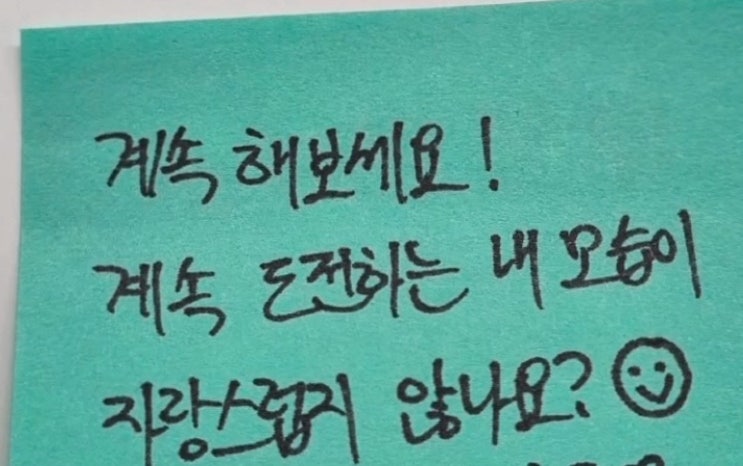 계속 해보세요!
계속 도전하는 내 모습이
자랑스럽지 않나요?